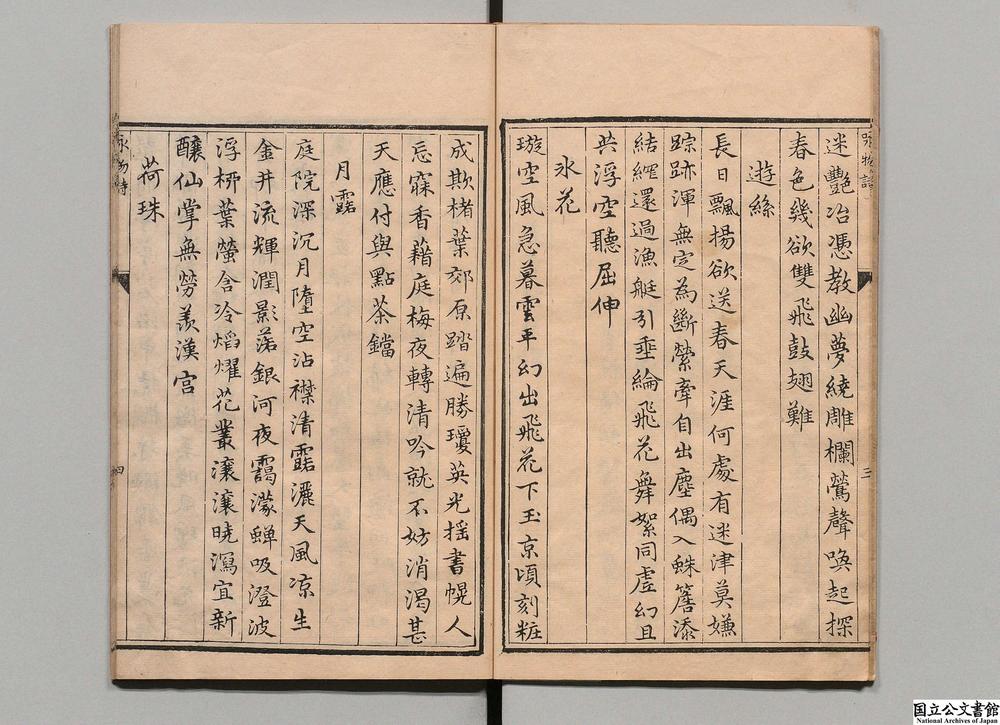 迷豔冶憑教幽夢繞雕欄鶯聲喚起探
春色幾欲雙飛鼓翅難
遊絲
長日飄揚欲送春天涯何處有迷津莫嫌
踪跡渾無定為斷縈牽自出塵偶入蛛簷添
結繩還過漁艇引垂綸飛花舞絮同虛幻且
共浮空聽屈伸
氷花
璇空風急暮雲平幻出飛花下玉京頃刻粧
成欺楮葉郊原踏遍勝瓊英光搖書幌人
忘寐香藉庭梅夜轉清吟就不妨消渴甚
天應付與點茶鐺
月露
庭院深沉月墮空沾襟清露灑天風凉生
金井流輝潤影落銀河夜靄濛蟬吸澄波
浮桺葉螢含冷熖燿花叢瀼瀼曉瀉宜新
釀仙掌無勞羨漢宮
荷珠
詠物詩
三
詠物詩
四
国立公文書館
National Archives of Japan